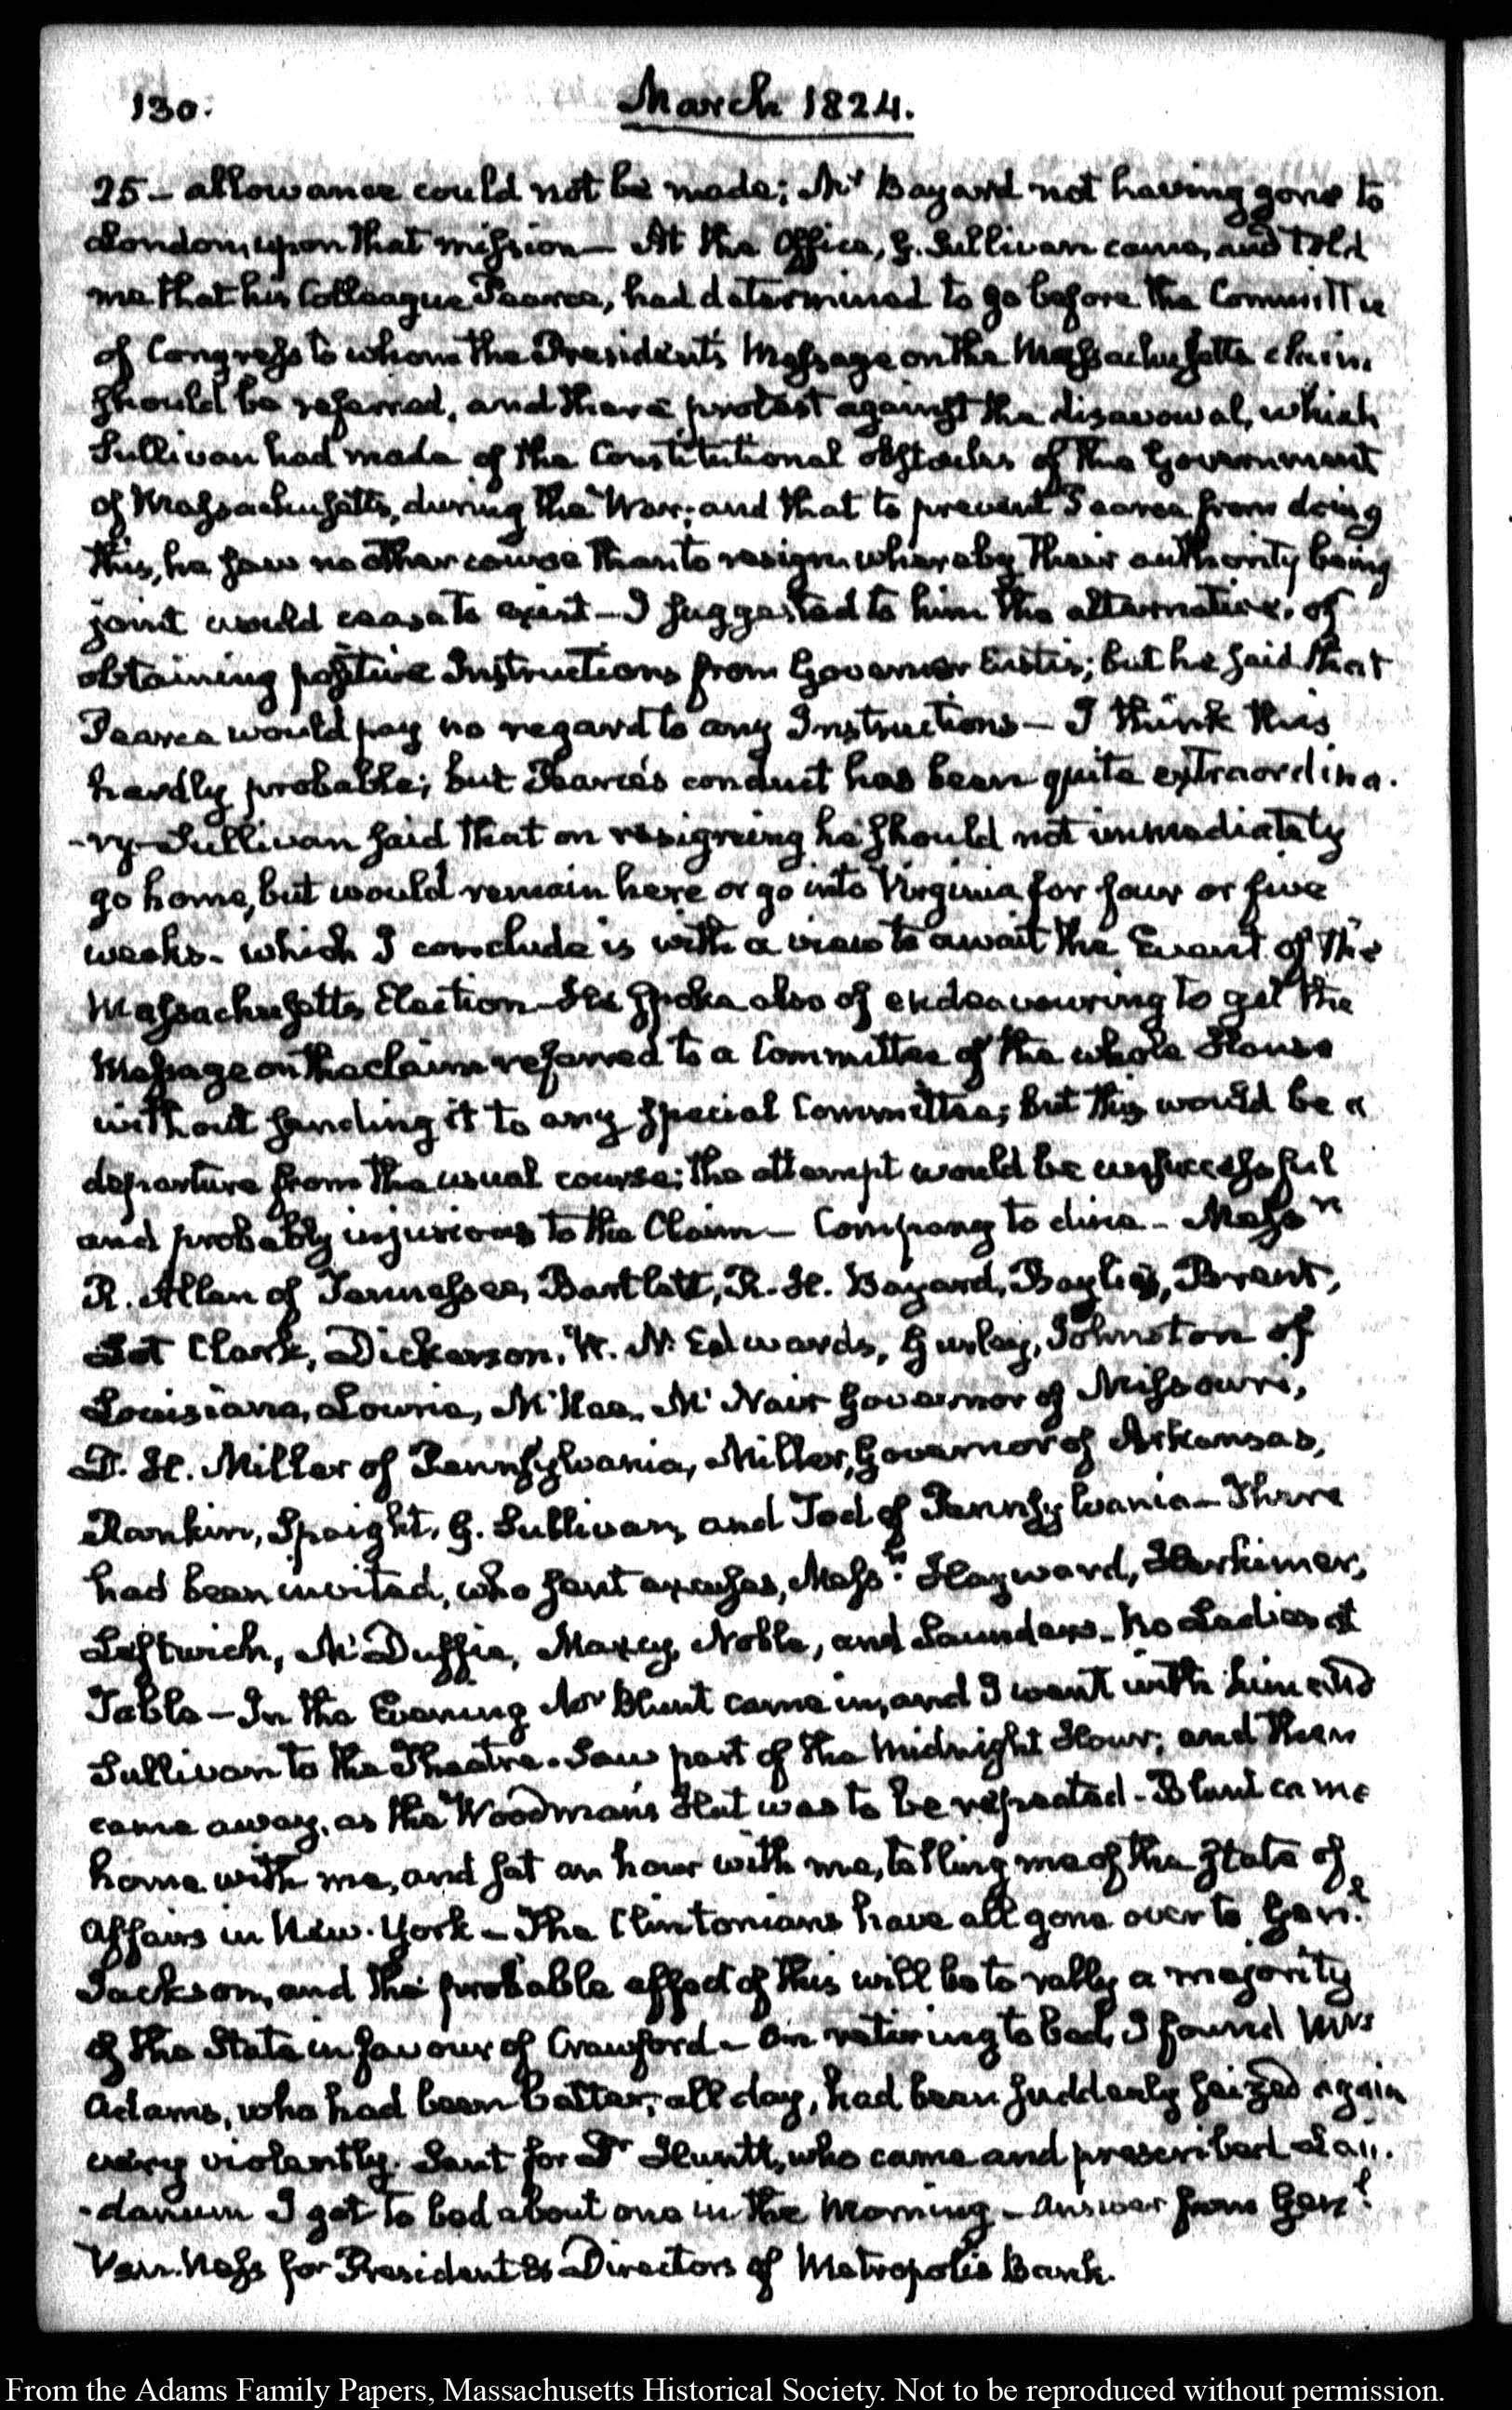 130.
March 1824.
25 – allowance could not be made; Mr Bayard not having gone to
London, upon that mission – At the Office, G. Sullivan came, and told
me that his Colleague Pearce, had determined to go before the Committee
of Congress to whom the President's Message on the Massachusetts claim
should be referred, and there protest against the disavowal, which
Sullivan had made of the Constitutional obstacles of the Government
of Massachusetts, during the War; and that to prevent Pearce from doing
this, he saw no other course than to resign whereby their authority being
joint would cease to exist – I suggested to him the alternative, of
obtaining positive Instructions from Governor Eustis; but he said that
Pearce would pay no regard to any Instructions – I think this
hardly probable; but Pearce's conduct has been quite extraordina-
-ry – Sullivan said that on resigning he should not immediately
go home, but would remain here or go into Virginia for four or five
weeks. which I conclude is with a view to await the Event of the
Massachusetts Election – He spoke also of endeavouring to get the
Message on the claim referred to a Committee of the whole House
without sending it to any special Committee; but this would be a
departure from the usual course; the attempt would be unsuccessful
and probably injurious to the Claim – Company to dine – Messrs
R. Allen of Tennessee, Bartlett, R. H. Bayard, Baylies, Brent,
Lot Clark, Dickerson, W. N. Edwards, Gurley, Johnston of
Louisiana, Lowrie, McKee, McNair Governor of Missouri,
D. H. Miller of Pennsylvania, Miller, Governor of Arkansas,
Rankin, Spaight, G. Sullivan, and Tod of Pennsylvania – There
had been invited, who sent excuses, Messrs Hayward, Herkimer,
Leftwich, McDuffie, Maxcy, Noble, and Saunders – No Ladies at
Table – In the Evening Mr Blunt came in, and I went with him and
Sullivan to the Theatre. Saw part of the Midnight Hour; and then
came away, as the Woodman's Hut was to be repeated – Blunt came
home with me, and sat an hour with me, telling me of the State of
Affairs in New-York – The Clintonians have all gone over to Genl
Jackson, and the probable effect of this will be to rally a majority
of the State in favour of Crawford – On retiring to bed, I found Mrs
Adams, who had been better, all day, had been suddenly seized again
very violently. Sent for Dr Huntt, who came and prescribed Lau-
-danum I got to bed about one in the Morning – Answer from Genl
Van-Ness for President & Directors of Metropolis Bank.
From the Adams Family Papers, Massachusetts Historical Society. Not to be reproduced without permission.